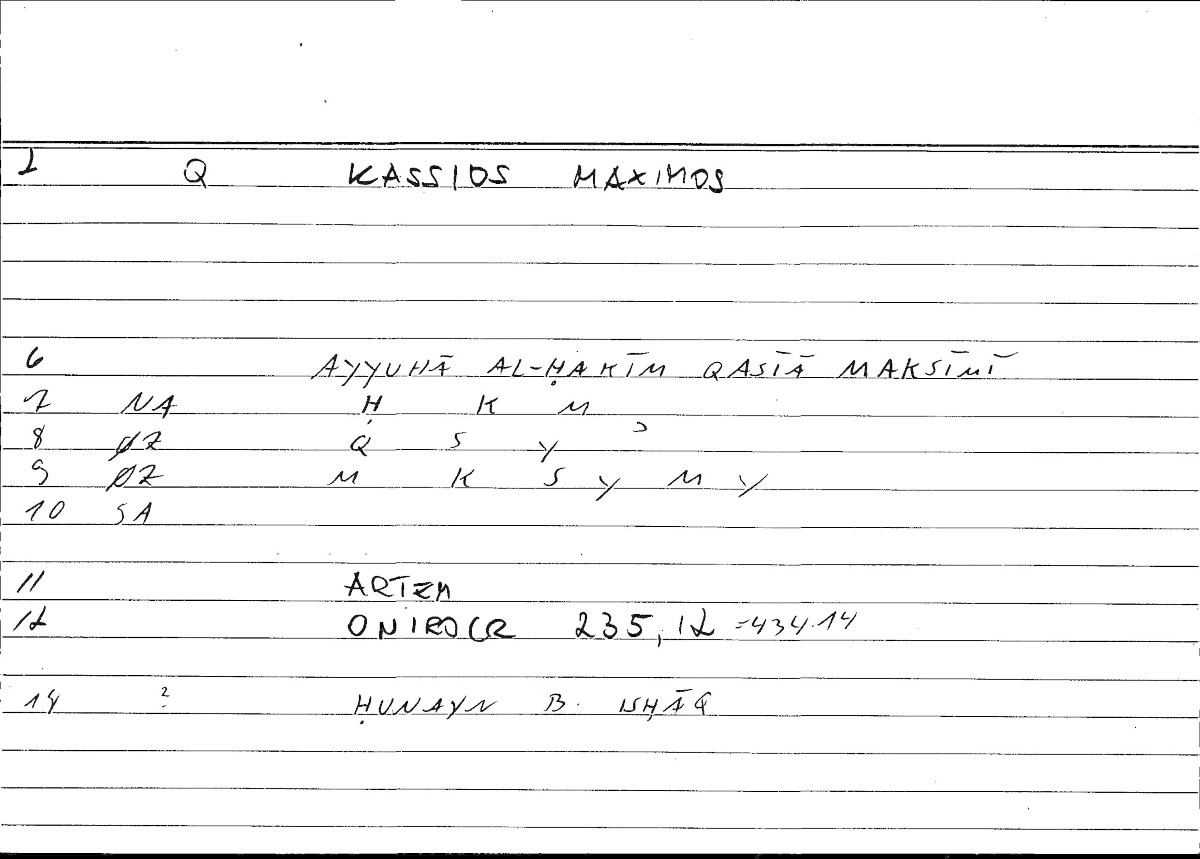 1 Q KASSIOS MAXIMOS
6 AYYUHĀ AL-ḤAKĪM QASĪĀ MAKSĪMĪ
7 NA Ḥ K M
8 ØZ Q S Y ʾ
9 ØZ M K S Y M Y
10 SA
11 ARTEM
12 ONIROCR 235,12 =434.14
14 ? ḤUNAYN B. ISḤĀQ